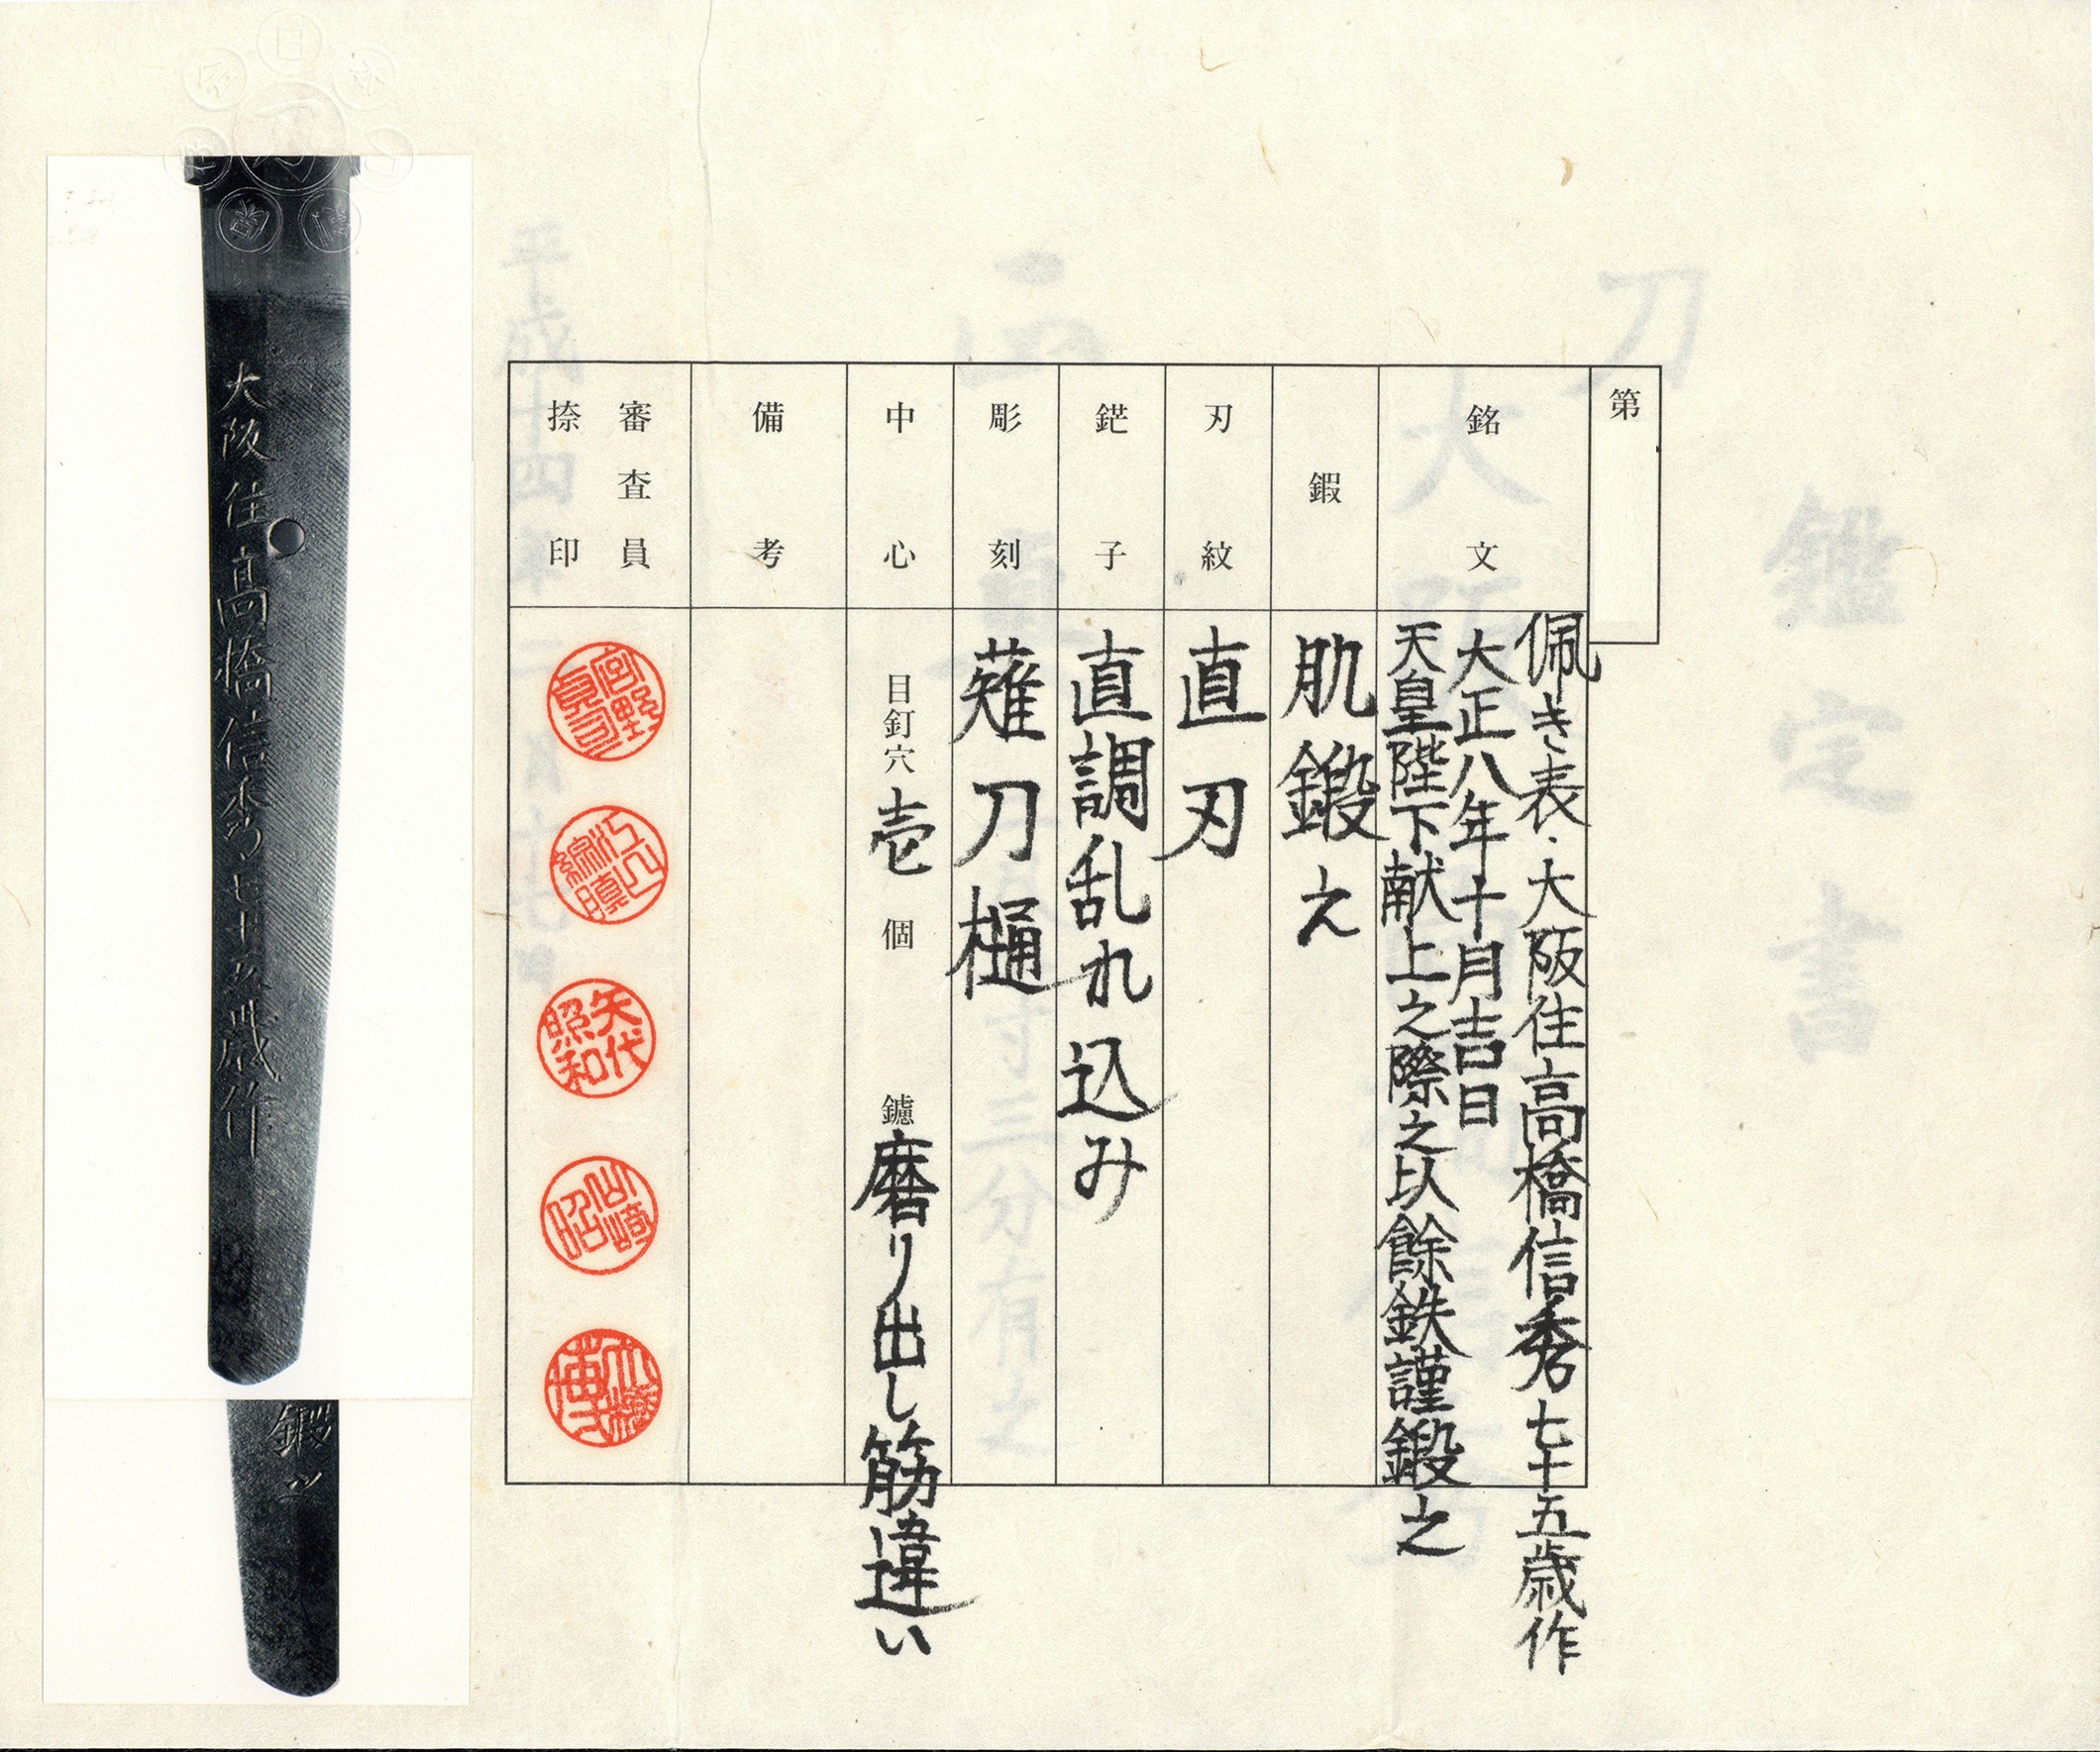 第
銘文
佩き表、大阪住高橋信秀七十五歳作
大正八年十月吉日
天皇陛下献上之際之以餘鉄謹鍛之
鍜
肌鍛え
刃紋
直刃
鋩子
直調乱れ込み
彫刻
薙刀樋
中心
目釘穴 壱 個
鑢 磨り出し筋違い
備考
審査員
捺印
矢代
照和
山崎
昭
大阪住高橋信秀七十五歳作
鍛之
鑑定書
刀